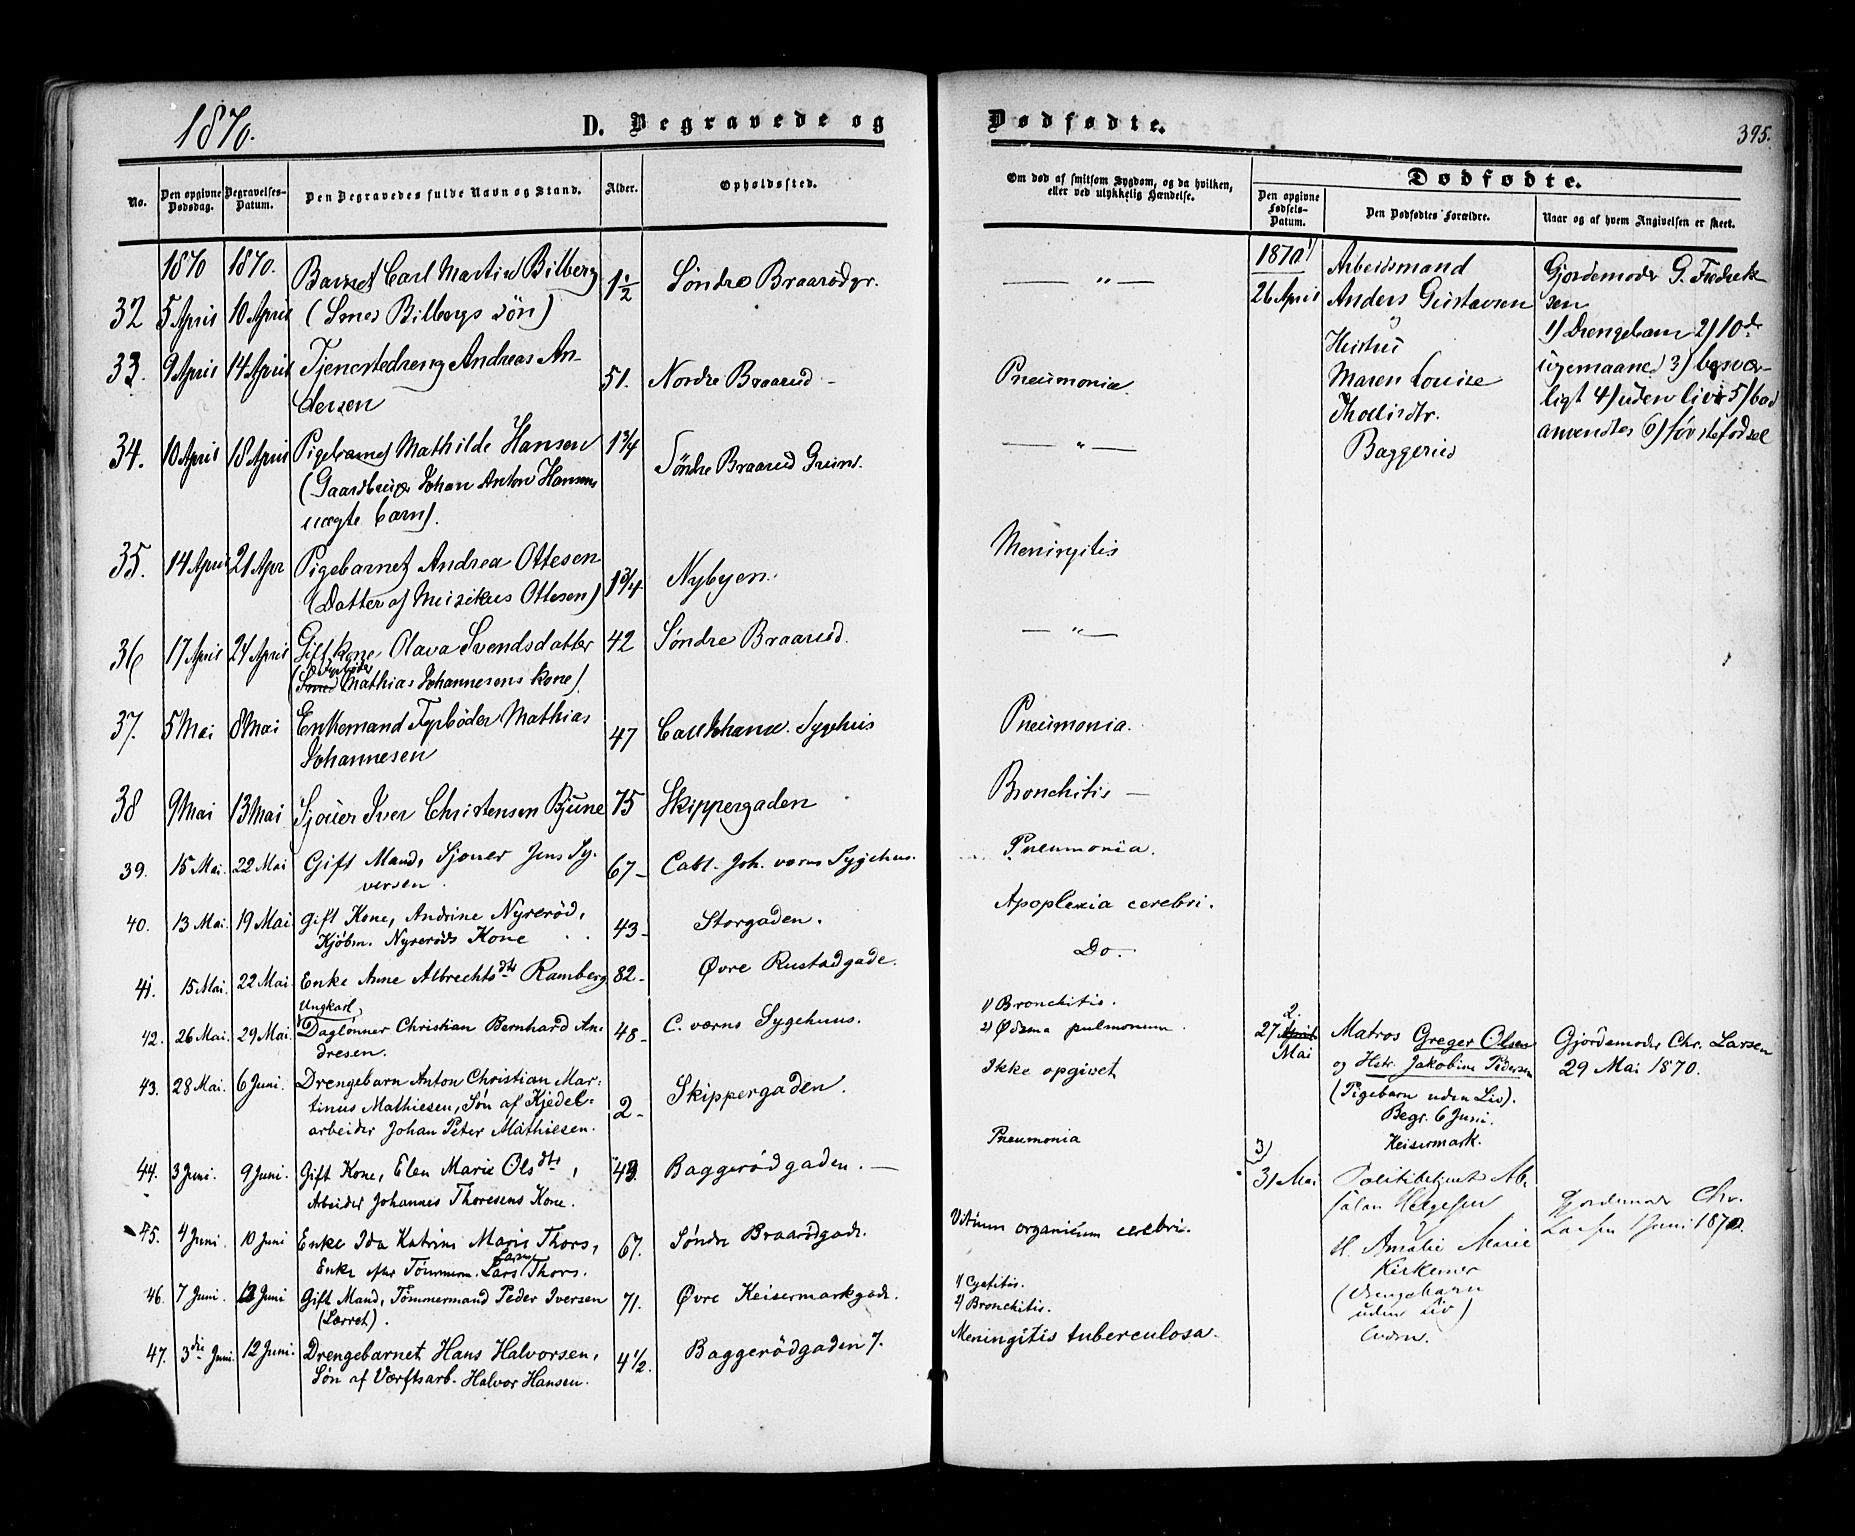 1870.
D. Begravede og
Dødfødte.
395.
No.
Den opgivne Dødsdag.
Begravelses-Datum.
Den Begravedes fulde Navn og Stand.
Alder.
Opholdssted.
Om død af smitsom Sygdom, og da hvilken, eller ved ulykkelig Hændelse.
Dødfødte.
Den opgivne Fødsels-Datum.
Den Dødfødtes Forældre.
Naar og af hvem Angivelsen er skeet.
1870 1870.
32 5 April 10 April Barnet Carl Martin Bilberg 1 1/2 Søndre Braarødgr. — " —
(Smed Bilbergs søn)
33. 9 April 14 April Tjenestedreng Andreas An- 51. Nordre Braarud - Pneumonia
dersen
34. 10 April 18 April Pigebarnet Mathilde Hansen 1 3/4 Søndre Braarud — " —
(Gaardbruger Johan Anton Hansens
uægte barn).
35. 14 April 21 Apr Pigebarnet Andrea Ottesen 1 3/4 Nybyen. Meningitis
(Datter af Musikus Ottesen)
36 17 April 24 April Gift kone Olava Svendsdatter 42 Søndre Braarud. — " —
Fyrbøder
(Smed Mathias Johannesens kone)
37. 5 Mai 8 Mai Enkemand Fyrbøder Mathias 47 Carl Johans. Sygehus Pneumonia.
Johannesen
38 9 Mai 13 Mai Sjouer Iver Christensen Bjune 75 Skippergaden Bronchitis —
39. 15 Mai. 22 Mai Gift Mand, Sjouer Jens Sy- 67- Carl. Joh. værns Sygehus. Pneumonia.
versen.
40. 13 Mai. 19 Mai Gift Kone, Andrine Nyrerød, 43- Storgaden. Apoplexia cerebri.
Kjøbm. Nyrerøds Kone
41. 15 Mai. 22 Mai. Enke Anne Albrechtsdtr Ramberg 82- Øvre Rustadgade. Do.
Ungkarl,
42. 26 Mai. 29 Mai. Daglønner Christian Bernhard An- 48- C. værns Sygehuus. 1) Bronchitis.
dresen. 2) Ødema pulmonum.
43. 28 Mai. 6 Juni. Drengebarn Anton Christian Mar- 2- Skippergaden. Ikke opgivet
tinus Mathiesen, Søn af Kjedel-
arbeider Johan Peter Mathiesen.
44. 3 Juni. 9 Juni. Gift Kone, Elen Marie Olsdtr, 43. Baggerødgaden. — Pneumonia
Arbeider Johannes Thoresens Kone.
45. 4 Juni. 10 Juni Enke Ida Katrine Marie Thors, 67. Søndre Braarødgade. Vitium organicum cerebri.
Enke efter Tømmerm. Lars Thors.
46. 7 Juni. 12 Juni Gift Mand, Tømmermand Peder Iversen 71. Øvre Keisermarkgade. 1) Cystitis.
(Lørret). 2) Bronchitis.
47. 3die Juni. 12 Juni. Drengebarnet Hans Halvorsen, 4 1/2. Baggerødgaden 7. Meningitis tuberculosa.
Søn af Værftsarb. Halvor Hansen.
1870 1
26 April
Arbeidsmand
Anders Gustavsen
og
Hustru
Maren Louise
Baggerud
Gjordemoder G. Fredrik-
sen
1) Drengebarn 2) 10de
ugemaaned 3) besvær-
ligt 4) uden liv 5) bad
anvendtes 6) førstefødsel
2.
27 April
Mai
Matros Greger Olsen
og Hstr. Jakobine Pedersen
(Pigebarn uden Liv).
Begr. 6 Juni.
Keisermark.
Gjordemoder Chr. Larsen
29 Mai 1870.
3)
31 Mai
Politibetjent Ab-
salon Helgesen
H. Amalie Marie
Kirkemer
(Drengebarn
uden Liv)
Gjordemoder Chr.
Larsen 1 Juni 1870.